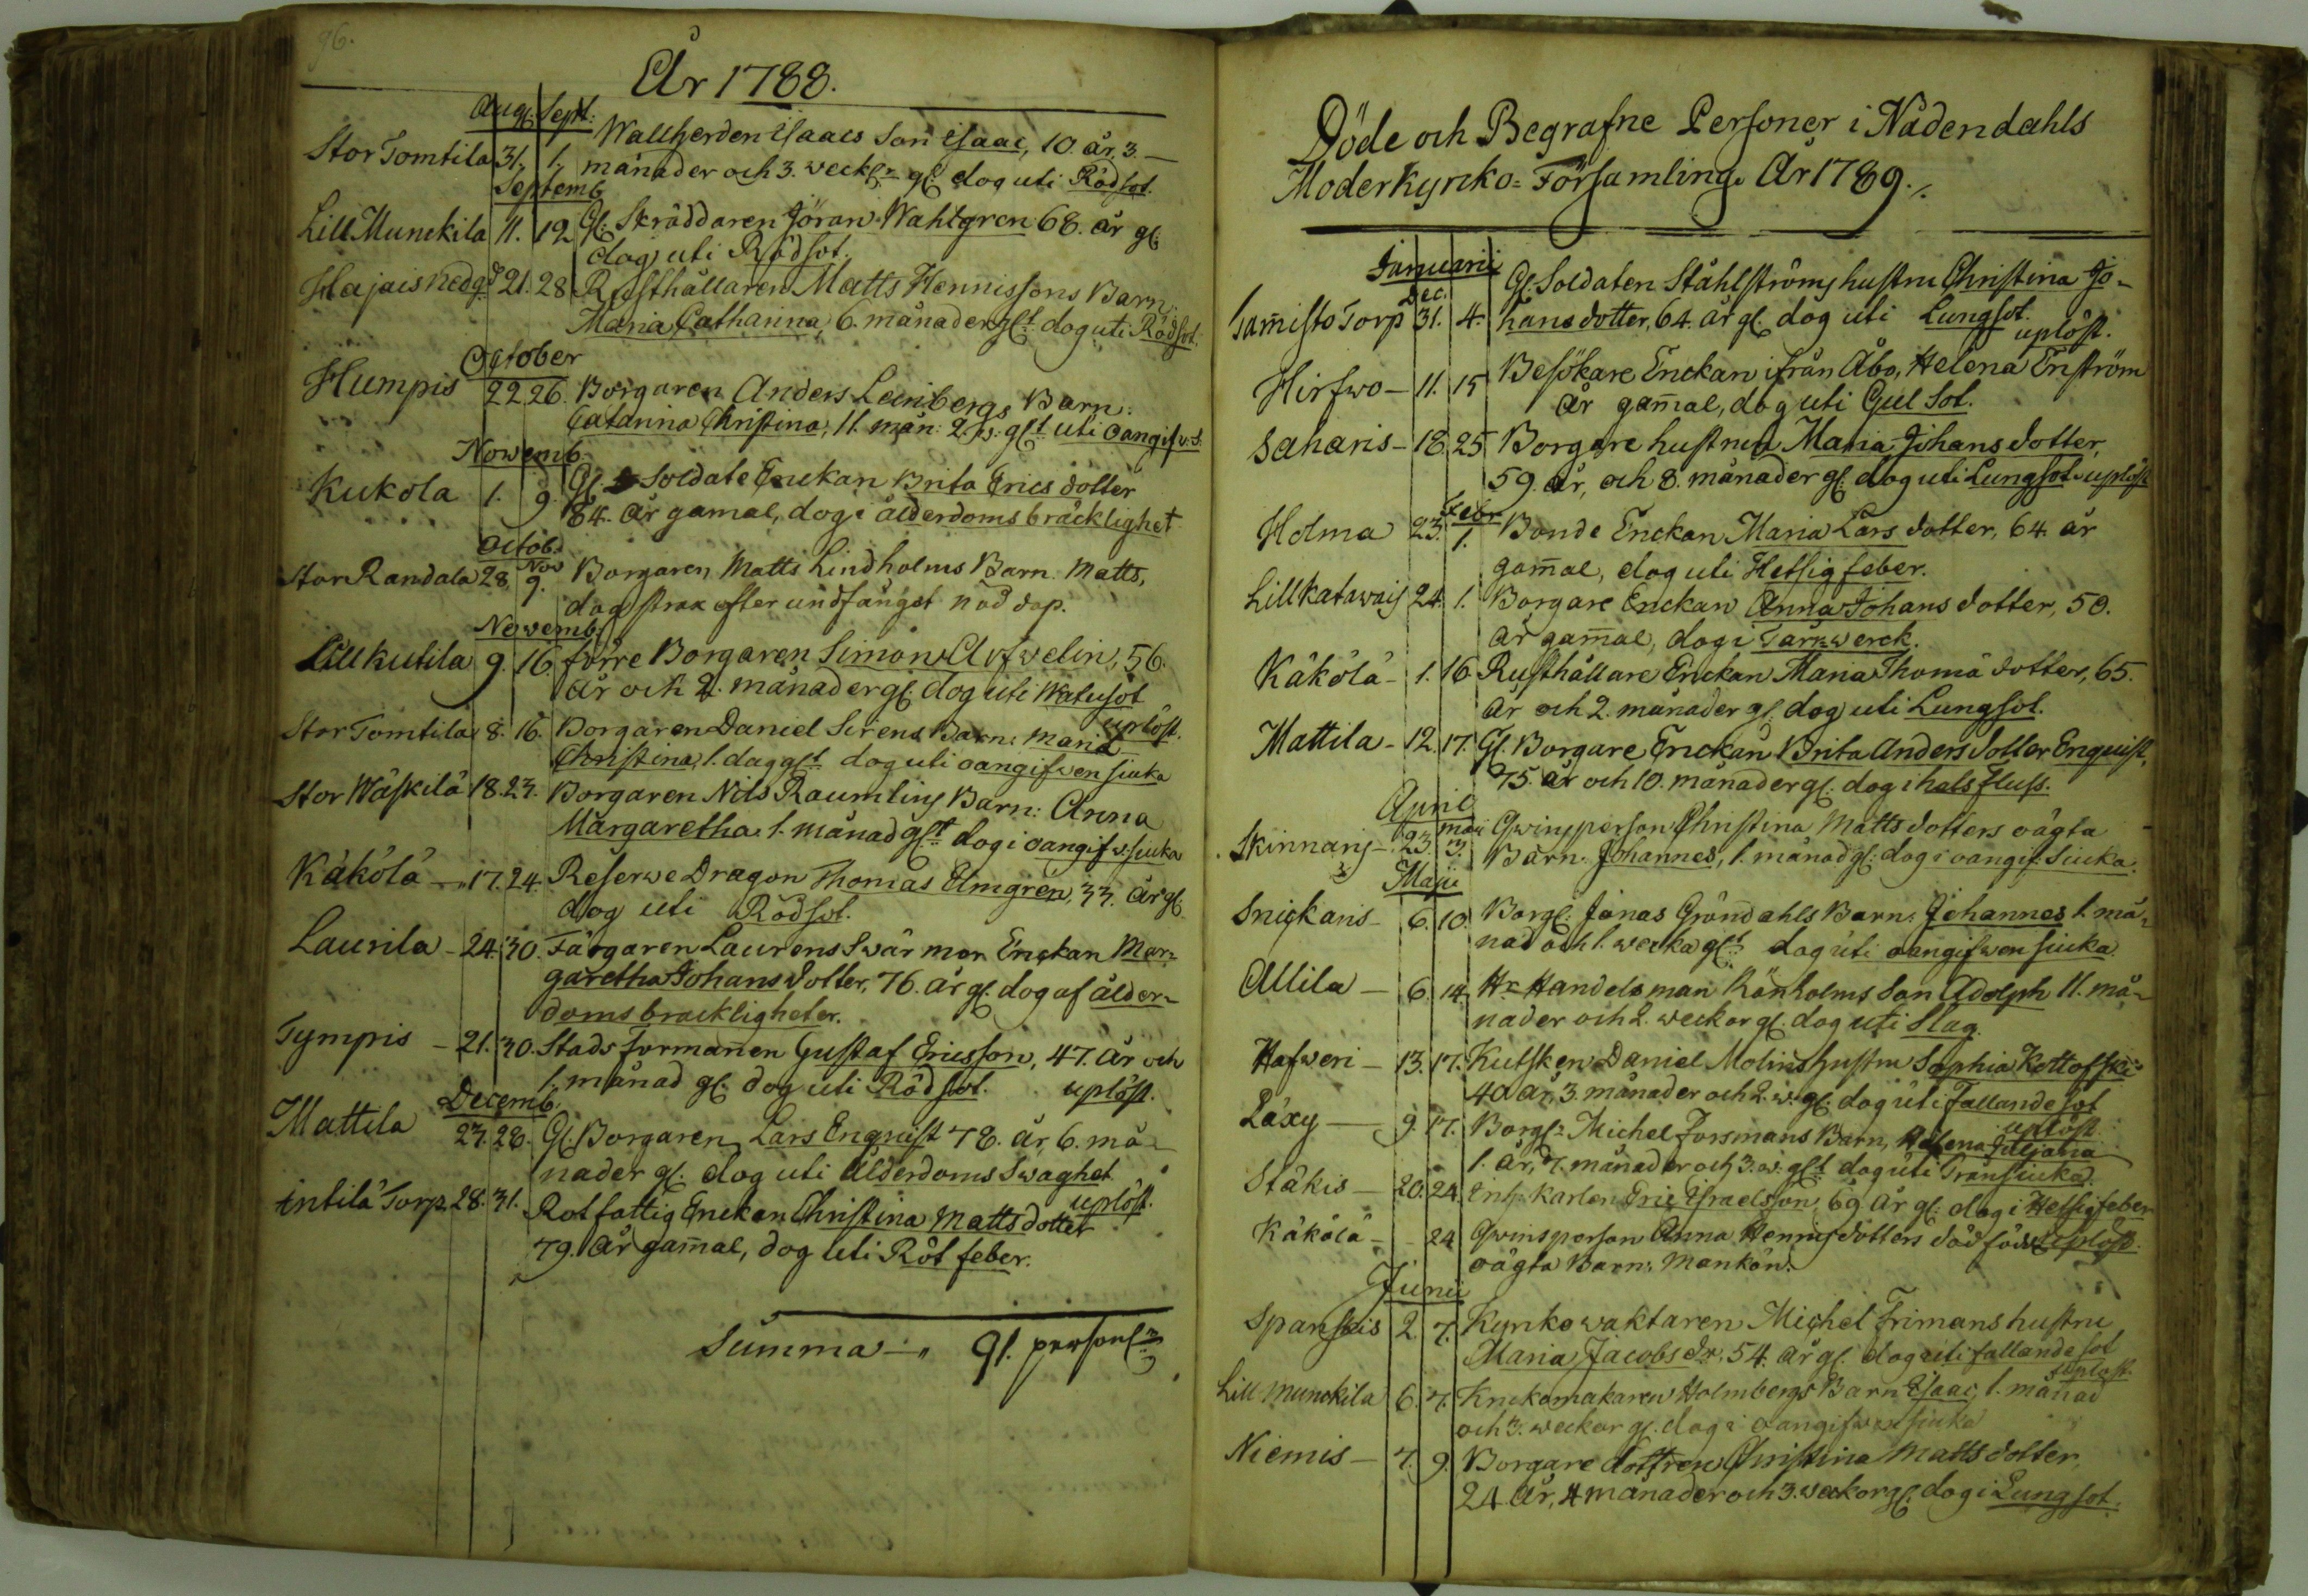 96.
År 1788.
Aug: Sept:
Stor Tomtila 31. 1. Wallherden Isaacs Son Isaac, 10. år, 3.
månader och 3. weck:r gl: dog uti Rödsot.
Septemb.
Lill Munckila 11. 12 Gl: Skräddaren Jöran Wahlgren 68. år gl:
dog uti Rödsot.
Hajais nedg:d 21. 28 Rusthållaren Matts Hennissons Barn:
Maria Catharina, 6. månader gl:t dog uti Rödsot.
October
Humpis 22 26. Borgaren Anders Leinbergs Barn:
Catarina Christina, 11. mån: 2. w: gl:t uti oangifv: S.
Novemb.
Kukola 1. 9. Gl: Soldate Enckan Brita Erics dotter
84. år gamal, dog i ålderdoms bräcklighet
Octob. Nov
Stor Randala 28. 9. Borgaren Matts Lindholms Barn. Matts,
dog strax efter undfånget nöd dop.
Novemb.
Lill Kutila 9. 16. förre Borgaren Simon Arfwelin, 56.
år och 2. månader gl: dog uti Watusot
uplöst.
Stor Tomtila 8. 16. Borgaren Daniel Sirens Barn: Maria
Christina, 1. dag gl:t dog uti oangifwen siuka
Stor Wäskilä 18. 23. Borgaren Nils Raumlins Barn: Anna
Margaretha 1. månad gl:t dog i oangifw: siuka
Käkölä 17. 24. Reserwe Dragon Thomas Elmgren, 33. år gl:
dog uti Rödsot.
Laurila 24. 30. Färgaren Laurens Swärmor Enckan Mar-
garetha Johans dotter, 76. år gl: dog af ålder-
doms bräckligheter.
Tympis 21. 30. Stads Formannen Gustaf Ericsson, 47. år och
1. månad gl: dog uti Rödsot. uplöst.
Decemb.
Mattila 23. 28. Gl: Borgaren Lars Enquist 78. år, 6. må-
nader gl: dog uti Ålderdoms Swaghet
uplöst.
Intilä Torp 28. 31. Rotfattig Enckan Christina Matts dotter
79. år gammal, dog uti Röt feber.
Summa 91. person:r
Döde och Begrafne Personer i Nådendahls
Moderkyrko-Församling År 1789.
Januarii
Dec.
Tammisto Torp 31. 4. Gl: Soldaten Ståhlströms hustru Christina Jo-
hans dotter, 64. år gl: dog uti Lungsot.
uplöst.
Hirfwo 11. 15 Besökare Enckan ifrån Åbo, Helena Enström
år gammal, dog uti Gul Sot.
Saharis 18. 25 Borgare hustrun Maria Johans dotter,
59. år, och 8. månader gl: dog uti Lungsot uplöst
Febr
Holma 23. 1. Bonde Enckan Maria Lars dotter, 64. år
gammal, dog uti Hetsig feber.
Lill Katawais 24. 1. Borgare Enckan Anna Johans dotter, 50.
år gammal, dog i Tarmwerck.
Käkölä 1. 16 Rusthållare Enckan Maria Thomä dotter, 65.
år och 2. månader gl: dog uti Lungsot.
Mattila 12. 17. Gl: Borgare Enckan Brita Anders dotter Enquist,
75. år och 10. månader gl: dog i hals fluss.
April
Maji
Skinnars 23. 3. Qwinsperson Christina Matts dotters oägta
Barn: Johannes, 1. månad gl: dog i oangif: siuka.
Maji
Snickaris 6. 10. Borg: Jonas Gröndahls Barn: Johannes 1. må-
nad och 1. wecka gl:t dog uti oangifwen siuka.
Allila 6. 14. Hr Handelsman Rönholms Son Adolph 11. må-
nader och 2. weckor gl: dog uti Slag.
Hafweri 13. 17. Kutsken Daniel Molins hustru Sophia Kottofski
40 år, 3. månader och 2. w: gl: dog uti Fallandesot
uplöst
Läxy 9 17. Borg:r Michel Forsmans Barn, Helena Juliana
1. år, 7. månader och 3. w: gl:t dog uti Transiuka.
Stäkis 20. 24. Inh: karlen Eric Israelsson, 69 år gl: dog i Hetsig feber
Käkölä 24 Qwinsperson Anna Hennisdotters dödfödde uplöst.
oägta Barn: Mankön.
Junii
Spanskis 2. 7. Kyrkowaktaren Michel Frimans hustru
Maria Jacobs dr, 54. år gl: dog uti fallande sot
uplöst.
Lill Munckila 6. 7. Krukomakaren Holmbergs Barn Isaac, 1. månad
och 3. weckor gl: dog i oangifwen siuka
Niemis 7. 9. Borgare dottren Christina Matts dotter,
24 år, 4 månader och 3. weckor gl: dog i Lungsot.